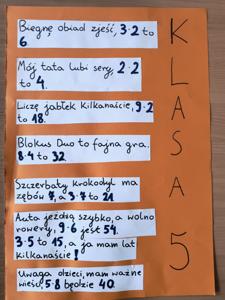 Biegnę obiad zjeść, 3·2 to
6.
Mój tata lubi sery, 2·2
to 4.
Liczę jabłek kilkanaście, 9·2
to 18.
Blokus Duo to fajna gra.
8·4 to 32.
Szczerbaty krokodyl ma
zębów 7, a 3·7 to 21
Auta jeżdżą szybko, a wolno
rowery, 9·6 jest 54.
3·5 to 15, a ja mam lat
kilkanaście!
Uwaga dzieci, mam ważne
wieści, 5·8 będzie 40.
KLASA 5